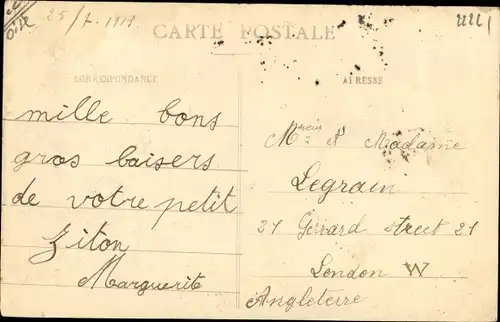 Oise
25/7. 1919
CARTE POSTALE
CORRESPONDANCE
ADRESSE
mille bons
gros baisers
de votre petit
Ziton
Marguerite
et Madame
Legrain
21 Gerrard street 21
London W
Angleterre